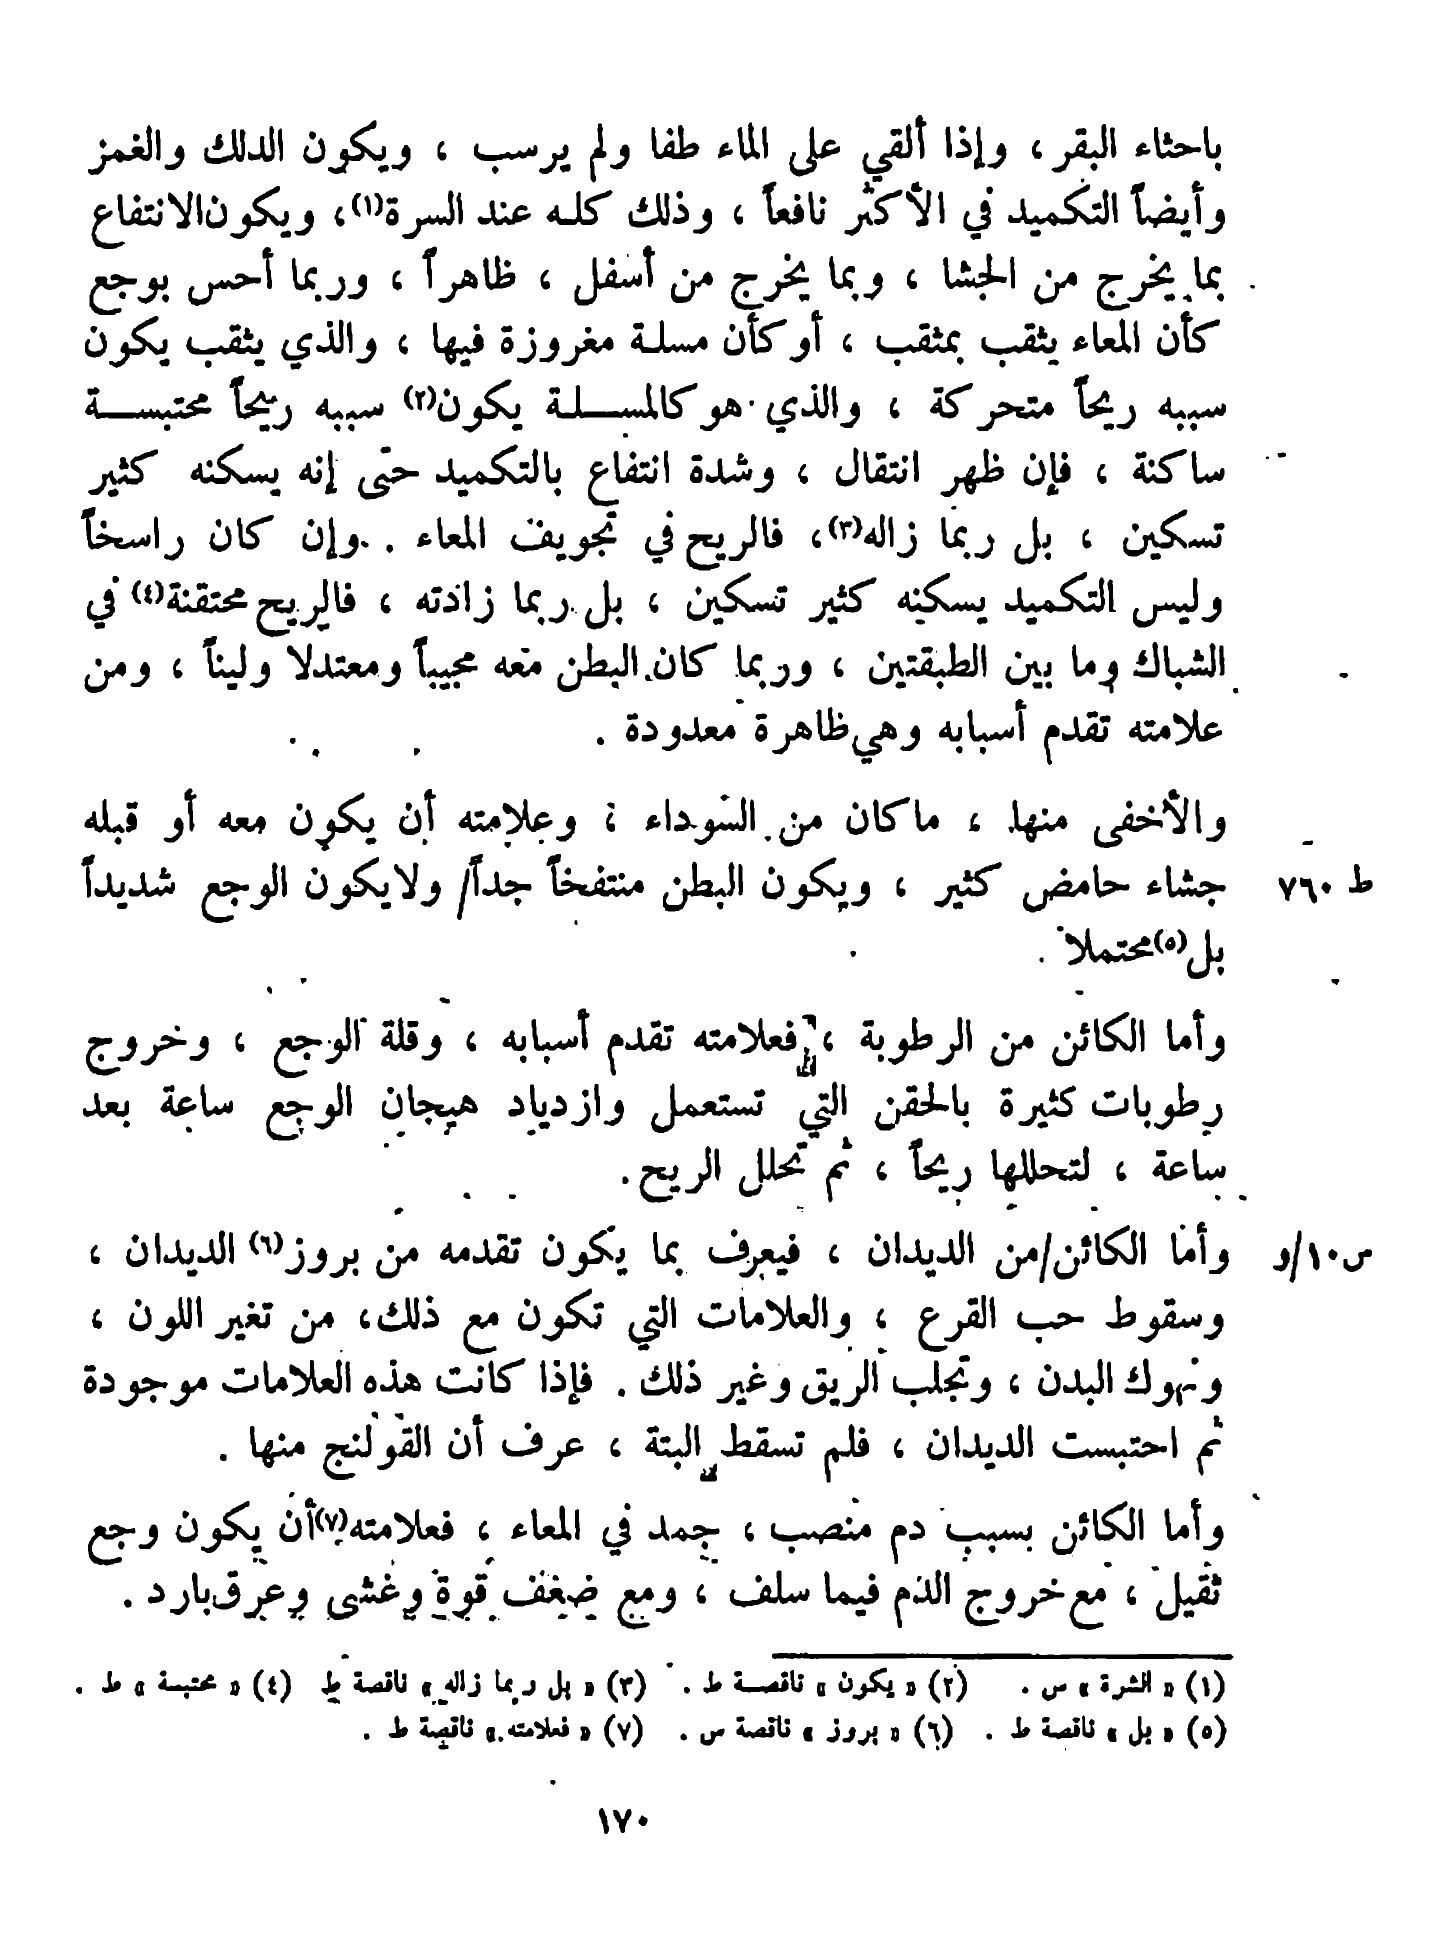 باحثاء البقر ، وإذا ألقي على الماء طفا ولم يرسب ، ويكون الدلك والغمز
وأيضاً التكميد في الأكثر نافعاً ، وذلك كله عند السرة(١)، ويكون الانتفاع
بما يخرج من الجشا ، وبما يخرج من أسفل ، ظاهراً ، وربما أحس بوجع
كأن المعاء يثقب بمثقب ، أو كأن مسلة مغروزة فيها ، والذي يثقب يكون
سببه ريحاً متحركة ، والذي هو كالمسلة يكون(٢) سببه ريحاً محتبسة
ساكنة ، فإن ظهر انتقال ، وشدة انتفاع بالتكميد حتى إنه يسكنه كثير
تسكين ، بل ربما زاله(٣)، فالريح في تجويف المعاء . وإن كان راسخاً
وليس التكميد يسكنه كثير تسكين ، بل ربما زادته ، فالريح محتقنة(٤) في
الشباك وما بين الطبقتين ، وربما كان البطن معه مجيباً ومعتدلا وليناً ، ومن
علامته تقدم أسبابه وهي ظاهرة معدودة .
والأخفى منها ، ما كان من السوداء ؛ وعلامته أن يكون معه أو قبله
جشاء حامض كثير ، ويكون البطن منتفخاً جداً/ ولا يكون الوجع شديداً
ط ٧٦٠
بل(٥) محتملا .
وأما الكائن من الرطوبة ، فعلامته تقدم أسبابه ، وقلة الوجع ، وخروج
رطوبات كثيرة بالحقن التي تستعمل وازدياد هيجان الوجع ساعة بعد
ساعة ، لتحللها ريحاً ، ثم تحلل الريح .
وأما الكائن/من الديدان ، فيعرف بما يكون تقدمه من بروز(٦) الديدان ،
س١٠/و
وسقوط حب القرع ، والعلامات التي تكون مع ذلك، من تغير اللون ،
ونهوك البدن ، وتجلب الريق وغير ذلك . فإذا كانت هذه العلامات موجودة
ثم احتبست الديدان ، فلم تسقط البتة ، عرف أن القولنج منها .
وأما الكائن بسبب دم منصب ، جمد في المعاء ، فعلامته(٧) أن يكون وجع
ثقيل ، مع خروج الدم فيما سلف ، ومع ضعف قوة وغشى وعرق بارد .
(١) « الشرة » س . (٢) « يكون » ناقصة ط . (٣) « بل ربما زاله » ناقصة ط (٤) « محتبسة » ط .
(٥) « بل » ناقصة ط . (٦) « بروز » ناقصة س . (٧) « فعلامته » ناقصة ط .
١٧٠